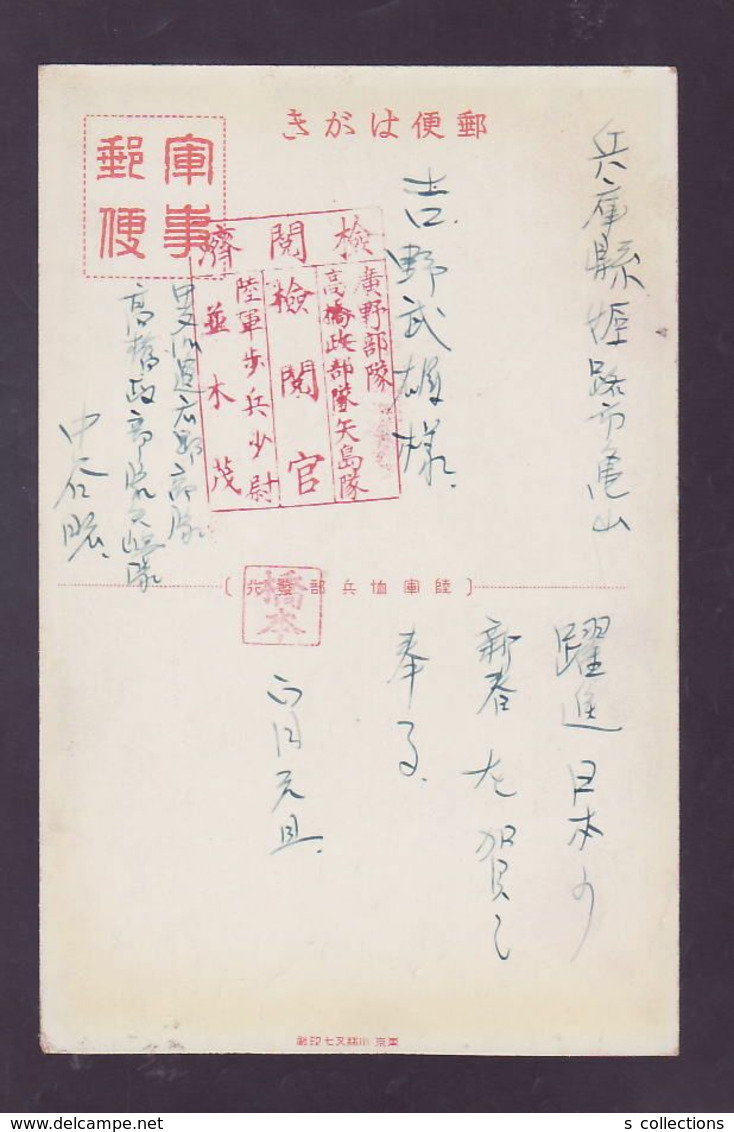 郵便はがき
軍事
郵便
兵庫縣姫路市亀山
吉野武雄様
檢閲濟
廣野部隊
高橋政部隊矢島隊
檢閲官
陸軍歩兵少尉
並木茂
廣野部隊
高橋政部隊矢島隊
中谷
陸軍恤兵部發行
橋本
躍進日本の
新春を賀し
奉る
正月元旦
s collections